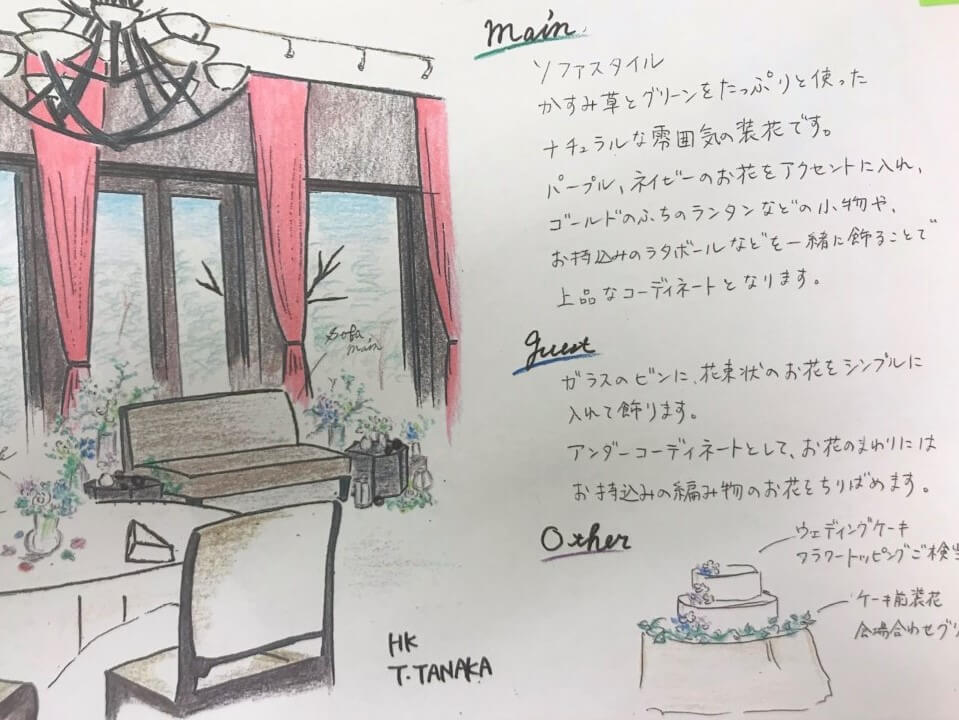 Main
ソファスタイル
かすみ草とグリーンをたっぷりと使った
ナチュラルな雰囲気の装花です。
パープル、ネイビーのお花をアクセントに入れ、
ゴールドのふちのランタンなどの小物や、
お持込みのラタボールなどを一緒に飾ることで
上品なコーディネートとなります。
Sofa
main
guest
ガラスのビンに、花束状のお花をシンプルに
入れて飾ります。
アンダーコーディネートとして、お花のまわりには
お持込みの編み物のお花をちりばめます。
Other
ウェディングケーキ
フラワートッピングご検
ケーキ前装花
会場合わせグリ
HK
T.TANAKA